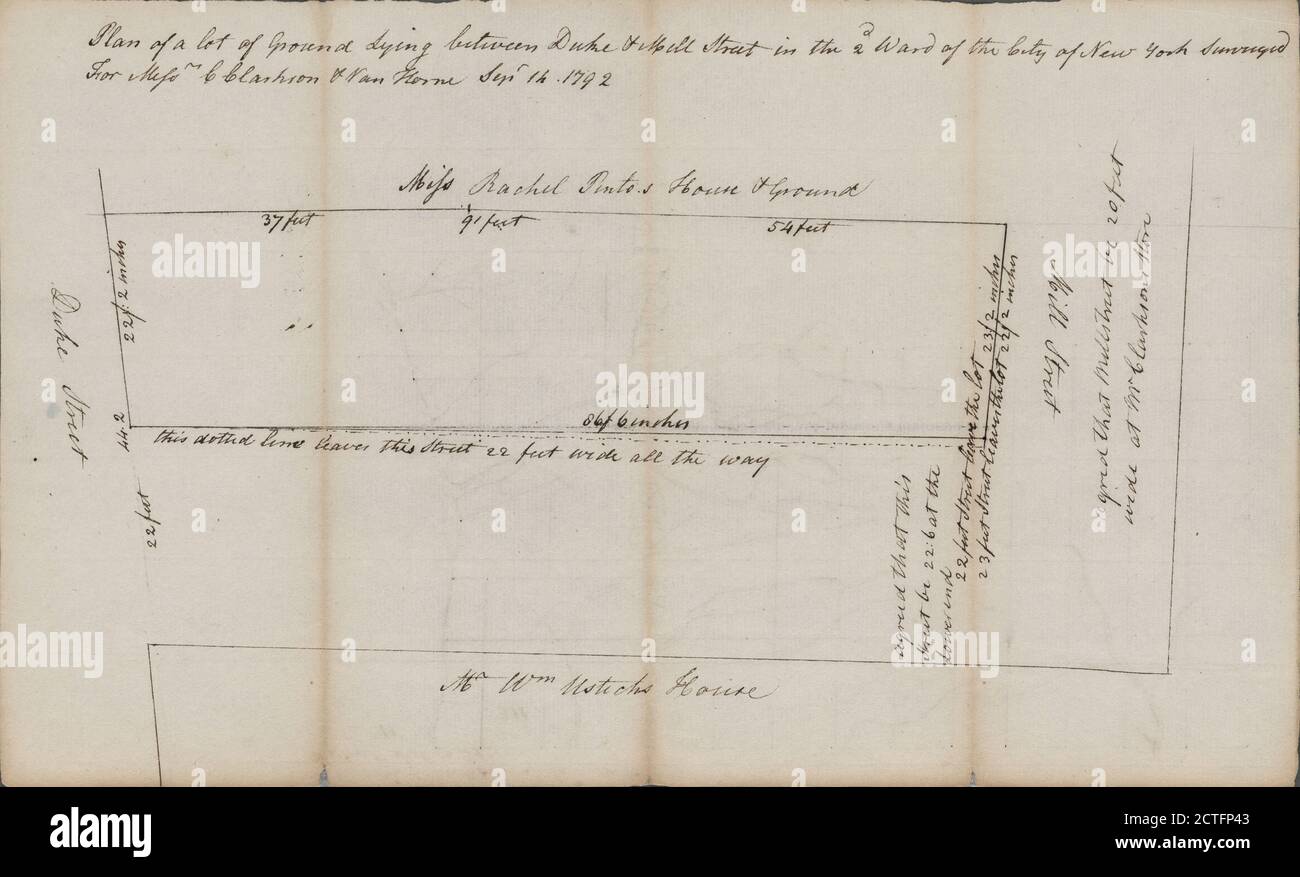 Plan of a lot of Ground Lying between Duke & Mill Street in the 2d Ward of the City of New York Surveyed
For Messrs C Clarkson & Van Horne Sepr 14. 1792
Miss Rachel Pinto.s House & Ground
37 feet
91 feet
54 feet
22f: 2 inches
Duke Street
44.2
22 feet
86f 6 inches
this dotted line leaves this Street 22 feet wide all the way
agreed that this
street be 22:6 at the
lower end
22 feet Street leave the lot 23f2 inches
23 feet Street leaves the lot 22f2 inches
Mill Street
agreed that Millstreet be 20 feet
wide at Mr Clarksons Store
Mr Wm Usticks House
alamy
Image ID: 2CTFP43
www.alamy.com